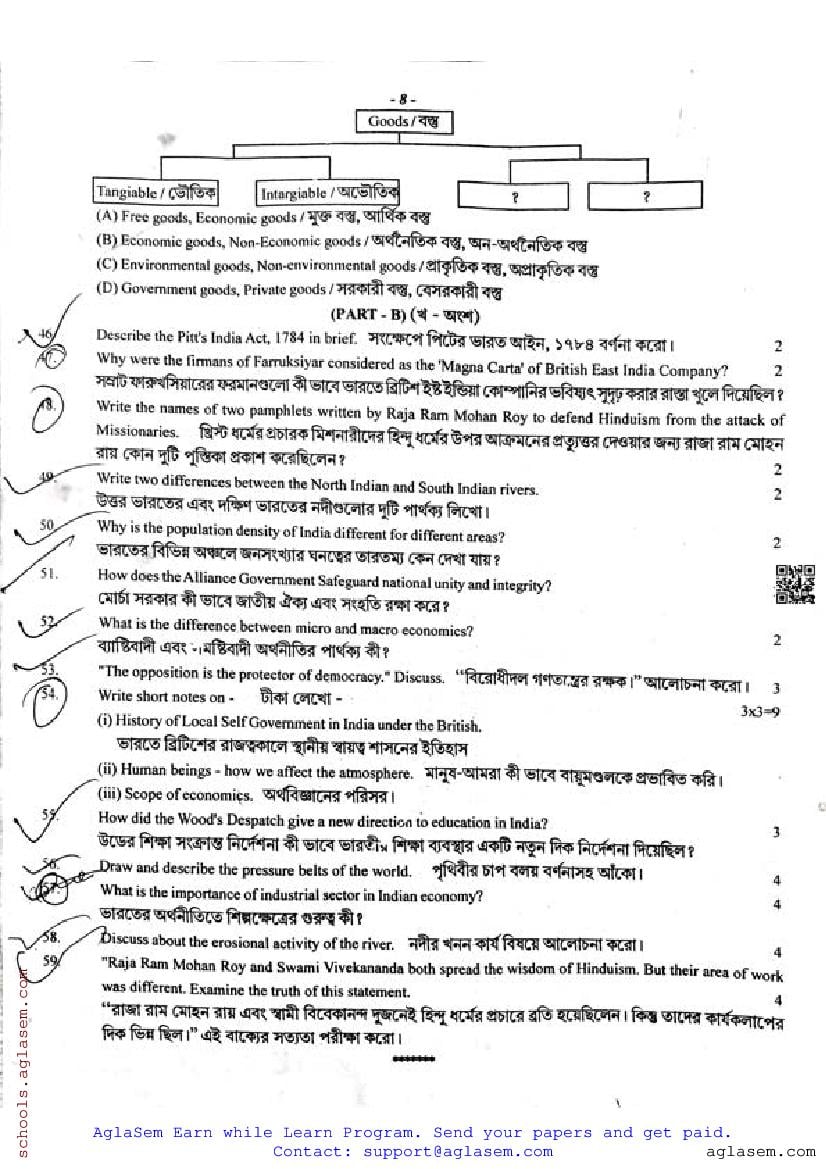 - 8 -
Goods / বস্তু
Tangiable / ভৌতিক
Intargiable / অভৌতিক
?
?
(A) Free goods, Economic goods / মুক্ত বস্তু, আর্থিক বস্তু
(B) Economic goods, Non-Economic goods / অর্থনৈতিক বস্তু, অন-অর্থনৈতিক বস্তু
(C) Environmental goods, Non-environmental goods / প্রাকৃতিক বস্তু, অপ্রাকৃতিক বস্তু
(D) Government goods, Private goods / সরকারী বস্তু, বেসরকারী বস্তু
(PART - B) (খ - অংশ)
46. Describe the Pitt's India Act, 1784 in brief. সংক্ষেপে পিটের ভারত আইন, ১৭৮৪ বর্ণনা করো। 2
47. Why were the firmans of Farruksiyar considered as the 'Magna Carta' of British East India Company? 2
সম্রাট ফারুখসিয়ারের ফরমানগুলো কী ভাবে ভারতে ব্রিটিশ ইষ্ট ইন্ডিয়া কোম্পানির ভবিষ্যৎ সুদৃঢ় করার রাস্তা খুলে দিয়েছিল?
48. Write the names of two pamphlets written by Raja Ram Mohan Roy to defend Hinduism from the attack of
Missionaries. খ্রিস্ট ধর্মের প্রচারক মিশনারীদের হিন্দু ধর্মের উপর আক্রমনের প্রত্যুত্তর দেওয়ার জন্য রাজা রাম মোহন
রায় কোন দুটি পুস্তিকা প্রকাশ করেছিলেন? 2
49. Write two differences between the North Indian and South Indian rivers. 2
উত্তর ভারতের এবং দক্ষিণ ভারতের নদীগুলোর দুটি পার্থক্য লিখো।
50. Why is the population density of India different for different areas? 2
ভারতের বিভিন্ন অঞ্চলে জনসংখ্যার ঘনত্বের তারতম্য কেন দেখা যায়?
51. How does the Alliance Government Safeguard national unity and integrity?
মোর্চা সরকার কী ভাবে জাতীয় ঐক্য এবং সংহতি রক্ষা করে?
52. What is the difference between micro and macro economics? 2
ব্যাষ্টিবাদী এবং মষ্টিবাদী অর্থনীতির পার্থক্য কী?
53. "The opposition is the protector of democracy." Discuss. “বিরোধীদল গণতন্ত্রের রক্ষক।” আলোচনা করো। 3
54. Write short notes on - টীকা লেখো - 3x3=9
(i) History of Local Self Government in India under the British.
ভারতে ব্রিটিশের রাজত্বকালে স্থানীয় স্বায়ত্ব শাসনের ইতিহাস
(ii) Human beings - how we affect the atmosphere. মানুষ-আমরা কী ভাবে বায়ুমণ্ডলকে প্রভাবিত করি।
(iii) Scope of economics. অর্থবিজ্ঞানের পরিসর।
55. How did the Wood's Despatch give a new direction to education in India? 3
উডের শিক্ষা সংক্রান্ত নির্দেশনা কী ভাবে ভারতীয় শিক্ষা ব্যবস্থার একটি নতুন দিক নির্দেশনা দিয়েছিল?
56. Draw and describe the pressure belts of the world. পৃথিবীর চাপ বলয় বর্ণনাসহ আঁকো। 4
57. What is the importance of industrial sector in Indian economy? 4
ভারতের অর্থনীতিতে শিল্পক্ষেত্রের গুরুত্ব কী?
58. Discuss about the erosional activity of the river. নদীর খনন কার্য বিষয়ে আলোচনা করো। 4
59. "Raja Ram Mohan Roy and Swami Vivekananda both spread the wisdom of Hinduism. But their area of work
was different. Examine the truth of this statement. 4
“রাজা রাম মোহন রায় এবং স্বামী বিবেকানন্দ দুজনেই হিন্দু ধর্মের প্রচারে ব্রতি হয়েছিলেন। কিন্তু তাদের কার্যকলাপের
দিক ভিন্ন ছিল।” এই বাক্যের সত্যতা পরীক্ষা করো।
*******
schools.aglasem.com
AglaSem Earn while Learn Program. Send your papers and get paid.
Contact: support@aglasem.com
aglasem.com